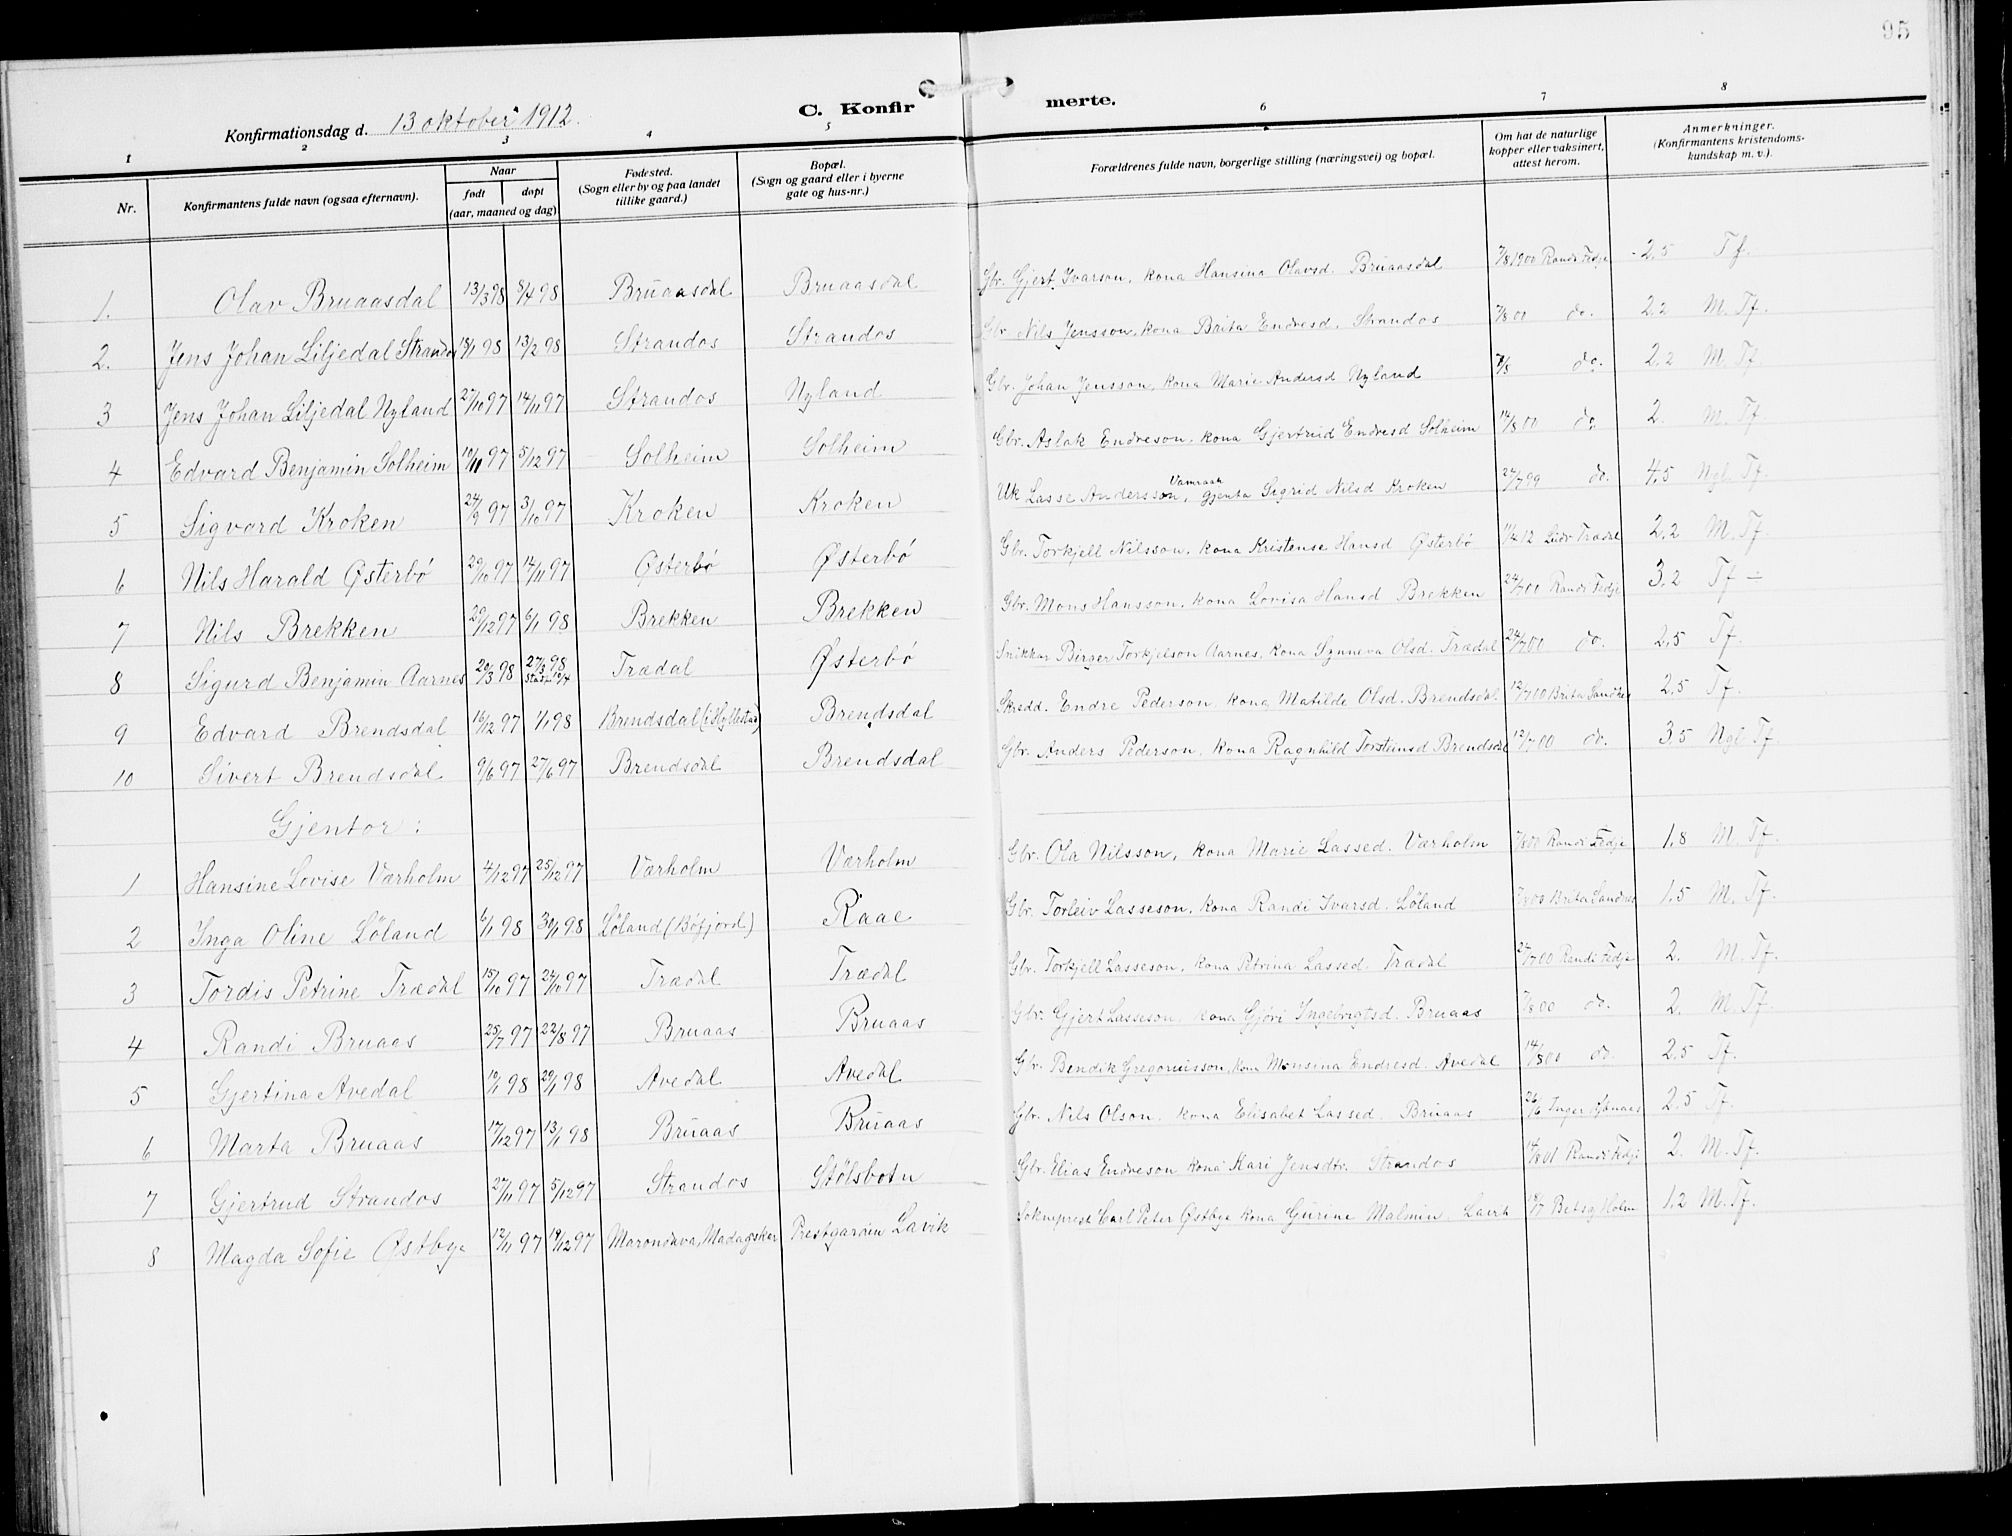 95
Konfirmationsdag d. 13 oktober 1912.
C. Konfir merte.
1 2 3 4 5 6 7 8
Nr. Konfirmantens fulde navn (ogsaa efternavn). Naar født døpt (aar, maaned og dag) Fødested. (Sogn eller by og paa landet tillike gaard.) Bopæl. (Sogn og gaard eller i byerne gate og hus-nr.) Forældrenes fulde navn, borgerlige stilling (næringsvei) og bopæl. Om hat de naturlige kopper eller vaksinert, attest herom. Anmerkninger. (Konfirmantens kristendoms-kundskap m. v.).
1. Olav Bruaasdal 13/3 98 8/4 98 Bruaasdal Bruaasdal Gbr. Gjert Ivarson, kona Hansina Olavsd. Bruaasdal 7/8 1900 Randi Fedje 2,5 Tf.
2. Jens Johan Liljedal Strandos 18/1 98 13/2 98 Strandos Strandos Gbr. Nils Jensson, kona Brita Endresd. Strandos 7/8 00 do. 2,2 M. Tf.
3 Jens Johan Liljedal Nyland 27/10 97 14/11 97 Strandos Nyland Gbr. Johan Jensson, kona Marie Andersd Nyland 7/8 do. 2,2 M. Tf
4 Edvard Benjamin Solheim 10/11 97 5/12 97 Solheim Solheim Gbr. Aslak Endreson, kona Gjertrud Endresd Solheim 14/8 00 do 2. M. Tf.
5 Sigvard Kroken 24/9 97 3/10 97 Kroken Kroken Uk Lasse Andersson, Vamraak gjenta Sigrid Nilsd Kroken 24/7 99 do. 4,5 Ngl. Tf.
6 Nils Harald Østerbø 29/10 97 14/11 97 Østerbø Østerbø Gbr. Torkjell Nilsson, kona Kristense Hansd Østerbø 11/4 12 Lidv Trædal 2,2 M. Tf.
7 Nils Brekken 29/12 97 6/1 98 Brekken Brekken Gbr. Mons Hansson, kona Lovisa Hansd Brekken 24/7 00 Randi Fedje 3,2 Tf ÷
8 Sigurd Benjamin Aarnes 20/3 98 27/3 98 Stadf. 10/4 Trædal Østerbø Snikkar Birger Torkjelson Aarnes, kona Synneva Olsd. Trædal 24/7 00 do. 2,5 Tf.
9 Edvard Brendsdal 16/12 97 1/1 98 Brendsdal (i Hyllestad) Brendsdal Skredd. Endre Pederson, kona Matilde Olsd. Brendsdal 12/7 00 Brita Sandnes 2,5 Tf.
10 Sivert Brendsdal 9/6 97 27/6 97 Brendsdal Brendsdal Gbr. Anders Pederson, kona Ragnhild Torsteinsd Brendsdal 12/7 00 do. 3,5 Ngl Tf
Gjentor:
1 Hansine Lovise Værholm 4/12 97 25/12 97 Værholm Værholm Gbr. Ola Nilsson, kona Marie Lassed. Værholm 7/8 00 Randi Fedje 1,8 M. Tf.
2 Inga Oline Løland 6/1 98 30/1 98 Løland (Bøfjord) Raae Gbr. Torleiv Lasseson, kona Randi Ivarsd. Løland 7/8 00 Brita Sandnes 1,5 M. Tf.
3 Tordis Petrine Trædal 15/10 97 24/10 97 Trædal Trædal Gbr. Torkjell Lasseson, kona Petrina Lassed. Trædal 24/7 00 Randi Fedje 2. M. Tf.
4 Randi Bruaas 25/7 97 22/8 97 Bruaas Bruaas Gbr. Gjert Lasseson, kona Gjøri Ingebrigtsd. Bruaas 7/8 00 do. 2. M. Tf.
5 Gjertina Avedal 10/1 98 29/1 98 Avedal Avedal Gbr. Bendik Gregoriusson, kona Monsina Endresd. Avedal 14/8 00 do. 2,5 Tf.
6 Marta Bruaas 17/12 97 13/1 98 Bruaas Bruaas Gbr. Nils Olson, kona Elisabet Lassed. Bruaas 26/6 Inger 2,5 Tf
7 Gjertrud Strandos 27/11 97 5/12 97 Strandos Stølsbotn Gbr. Elias Endreson kona Kari Jensdtr. Strandos 14/8 01 Randi Fedje 2. M. Tf.
8 Magda Sofie Østbye 12/11 97 19/12 97 Morondava, Madagskar Prestgarden Lavik Sokneprest Carl Peter Østbye kona Gurine Malmin. Lavik 19/7 Betsy Holm 1,2 M. Tf.